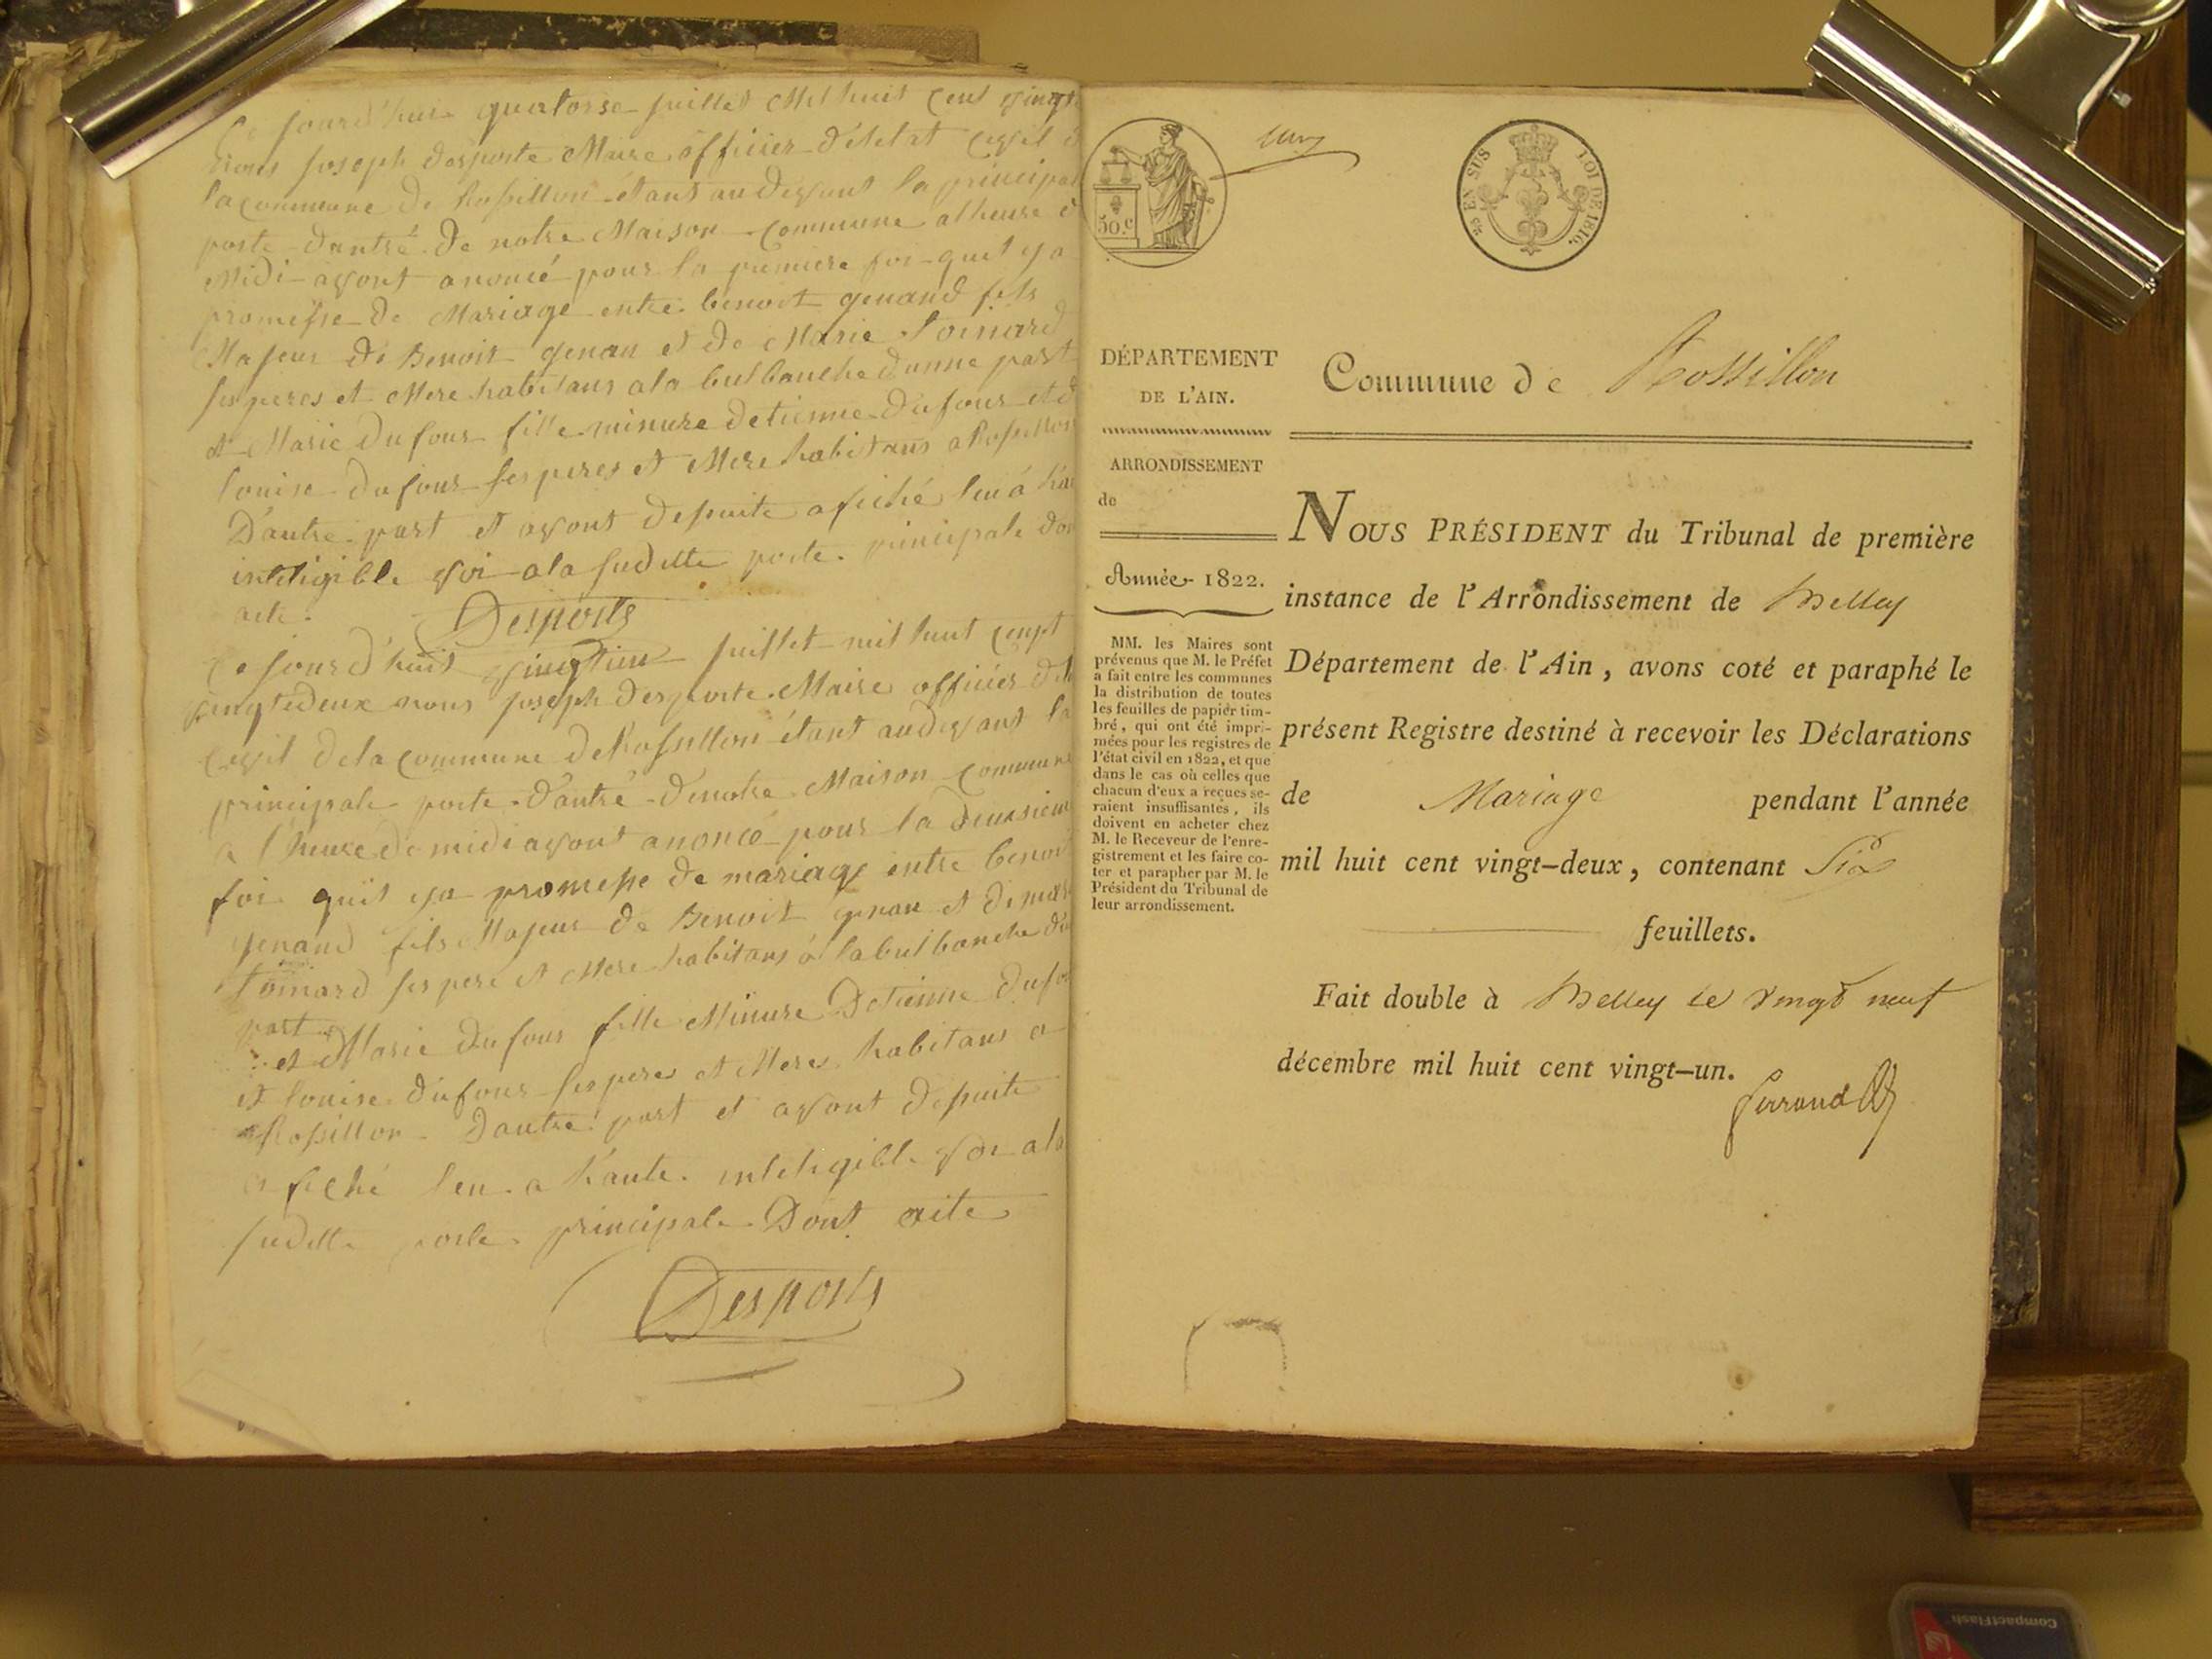 Ce jourd'huit quatorse juillet Mil huit cent vingt
nous joseph desporte Maire officier d'etetat cevil d
la commune de Rossillon étant au devant la principal
porte dantré de notre Maison commune alheure d
Midi avont anoncé pour la premiere foi quil ya
promesse de Mariage entre benoit genand fils
Majeur de Benoit genan et de Marie Toinard
ses peres et Mere habitans a la bulbanche dunne part
et Marie Dufour fille minure detienne Dufour et d
louise dufour ses peres et Mere habitans a Rossillon
Dautre part et avont desuite afiché leu a hau
inteligible voi a la suditte porte principale don
acte. Desports
Ce jourd'huit vingtieu juillet mil huit cenpt
vingtedeux nous joseph desporte Maire officier det
cevil dela commune de Rossillon étant au devant la
principale porte d'antré denotre Maison commune
a l'heure de midi avont anoncé pour la deuxsieme
foi quil ya promesse de mariage entre benoit
genand fils Majeur de Benoit genan et de mar
Toinard ses pere et Mere habitans a la bulbanche du
part
et Marie Dufour fille Minure Detienne dufo
et louise dufour ses peres et Meres habitans a
Rossillon Dautre part et avont desuite
afiché leu a haute inteligible voi a la
suditte porte principale Dont aite
Desports
50.c
2/5 EN SUS LOI DE 1816.
DÉPARTEMENT
DE L'AIN.
Commune de Rossillon
ARRONDISSEMENT
de
Année 1822.
MM. les Maires sont
prévenus que M. le Préfet
a fait entre les communes
la distribution de toutes
les feuilles de papier tim-
bré, qui ont été impri-
mées pour les registres de
l'état civil en 1822, et que
dans le cas où celles que
chacun d'eux a reçues se-
raient insuffisantes, ils
doivent en acheter chez
M. le Receveur de l'enre-
gistrement et les faire co-
ter et parapher par M. le
Président du Tribunal de
leur arrondissement.
NOUS PRÉSIDENT du Tribunal de première
instance de l'Arrondissement de Belley
Département de l'Ain, avons coté et paraphé le
présent Registre destiné à recevoir les Déclarations
de Mariage pendant l'année
mil huit cent vingt-deux, contenant Six
feuillets.
Fait double à Belley le vingt neuf
décembre mil huit cent vingt-un.
CompactFlash